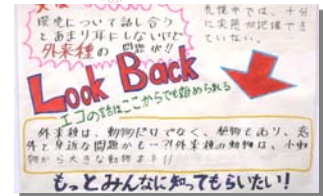 環境について話し合う
とあまり耳にしないけど
外来種の問題も!!
札幌市では、十分
に実態が把握でき
ていない。
Look Back
エコの話はここからでも始められる
外来種は、動物だけでなく、植物もあり、意
外と身近な問題かも…?!外来種の動物は、小動
物から大きな動物まで!!
もっとみんなに知ってもらいたい!